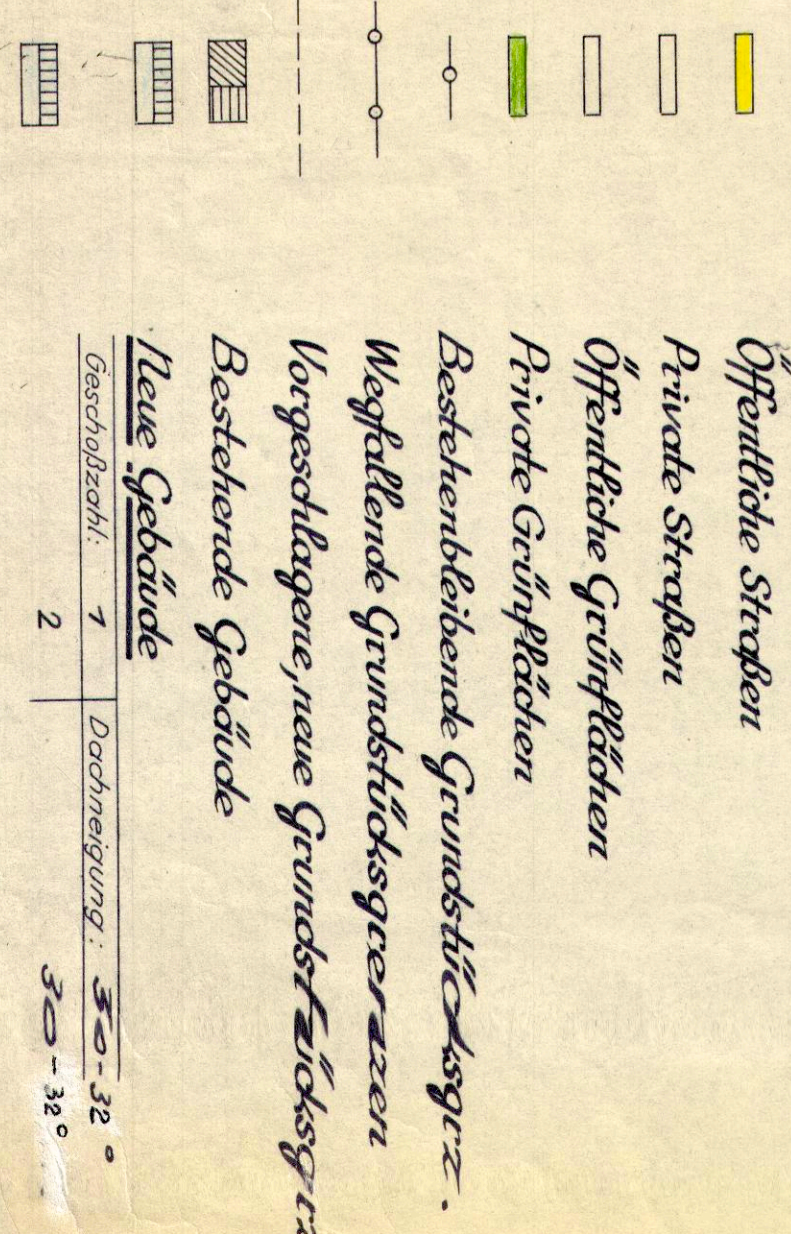 Öffentliche Straßen
Private Straßen
Öffentliche Grünflächen
Private Grünflächen
Bestehenbleibende Grundstücksgrz.
Wegfallende Grundstücksgrenzen
Vorgeschlagene, neue Grundstücksgrz
Bestehende Gebäude
Neue Gebäude
Geschoßzahl: 1 Dachneigung: 30-32°
2 30-32°